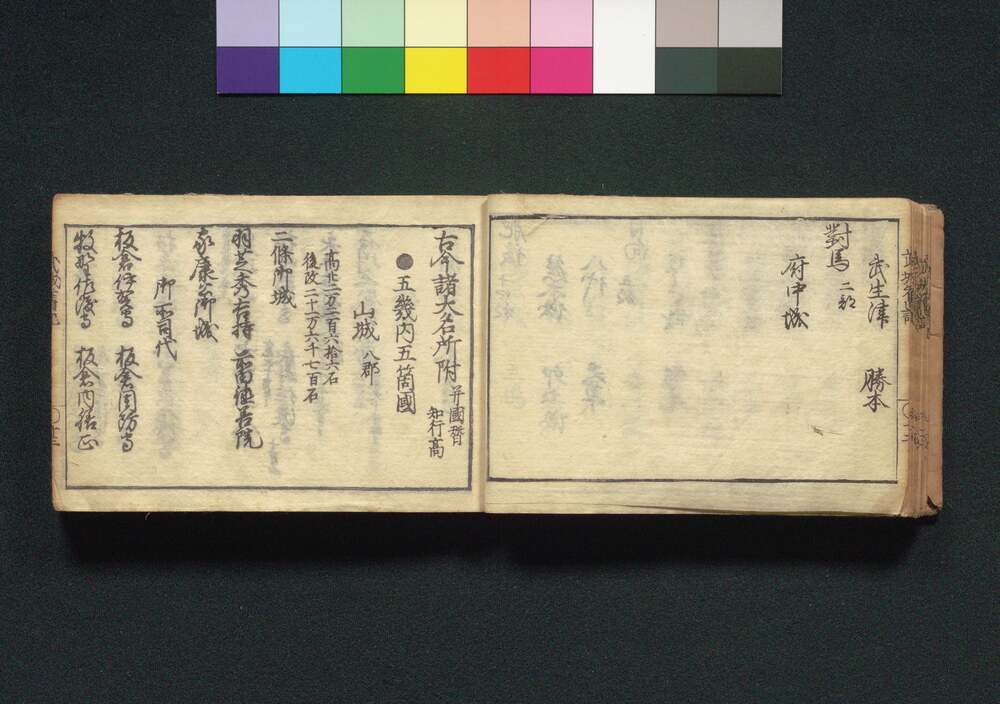 武生津 勝本
對馬 二郡
府中城
古今諸大名所附 并國替 知行高
●五幾内五箇國
山城 八郡
高廿二万二百六拾六石
後改二十一万六千七百石
二條御城
羽芝秀吉持 前田徳善院
家康公御城
御所司代
板倉伊賀守 板倉周防守
牧野佐渡守 板倉内膳正